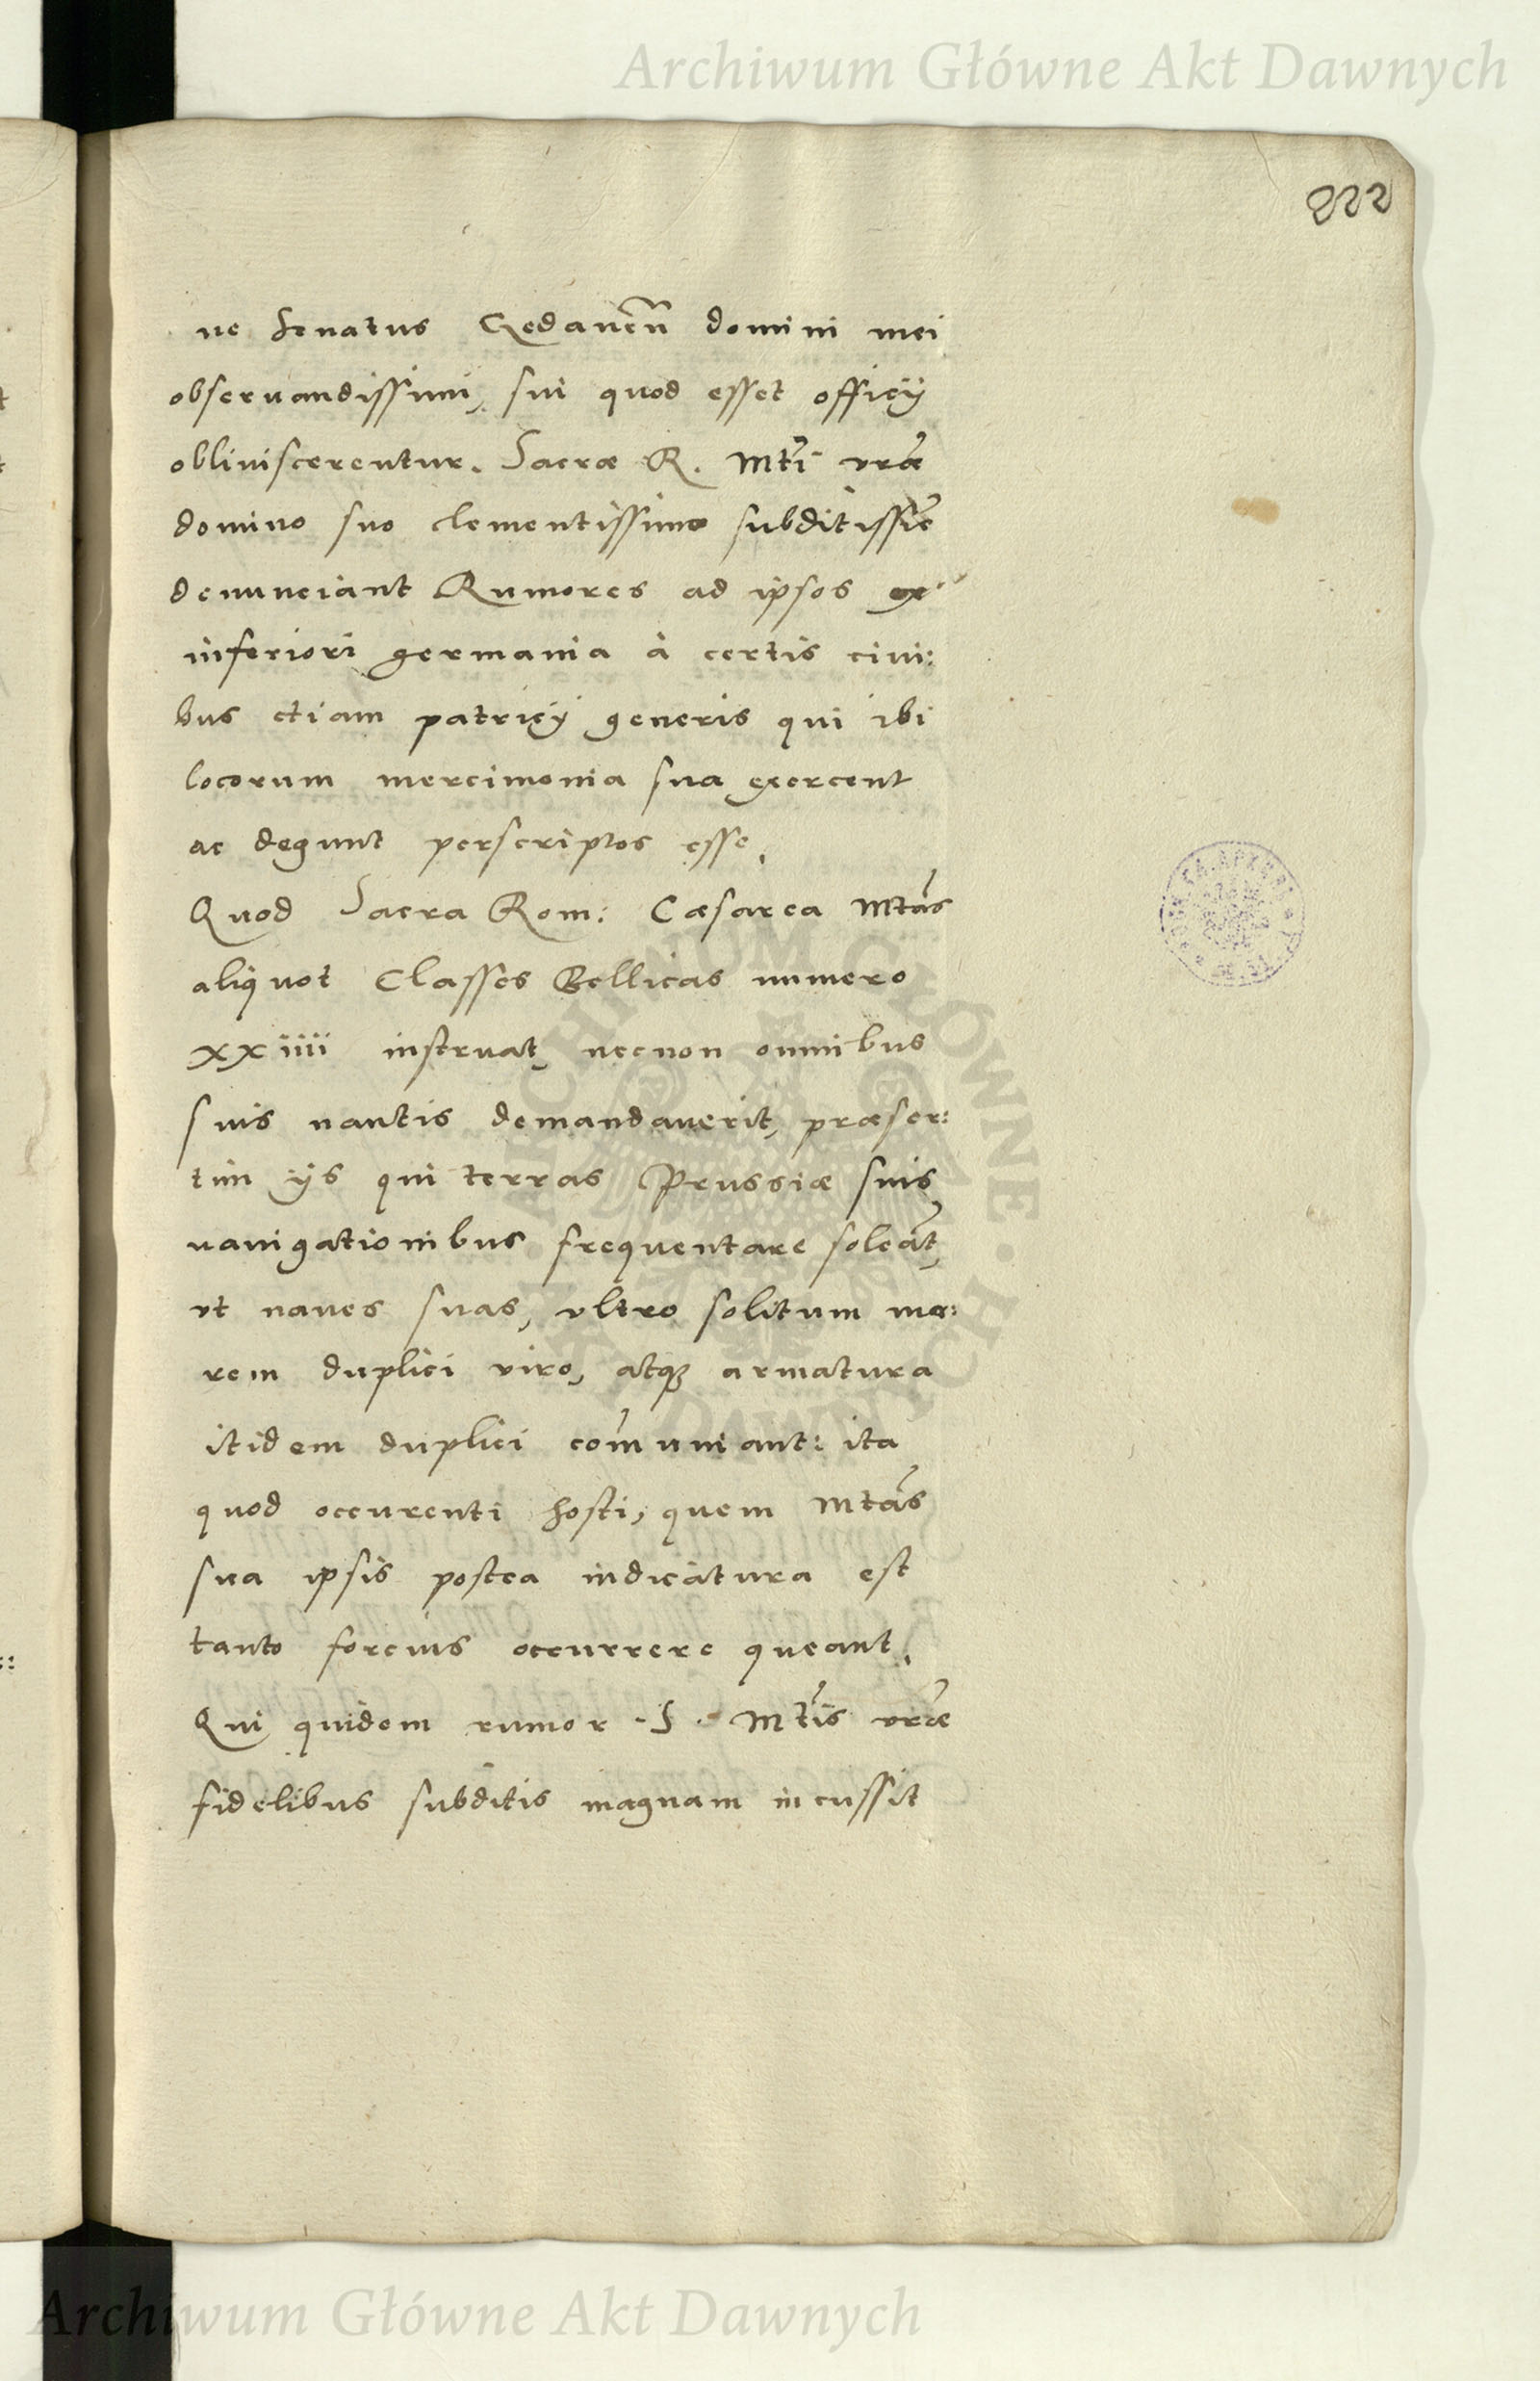 Archiwum Główne Akt Dawnych
222
ne Senatus Gedanen̄ domini mei
obseruandissimi, sui quod esset officÿ
obliuiscerentur. Sacræ R. Mti vræ
domino suo clementissimo subditissie
denunciant Rumores ad ipsos ex
inferiori germania à certis ciui:
bus etiam patricÿ generis qui ibi
locorum mercimonia sua exercent
ac degunt perscriptos esse.
Quod Sacra Rom: Cæsarea Mtas
aliquot Classes Bellicas numero
xxiiii instruat, necnon omnibus
suis nautis demandauerit, præser:
tim ÿs qui terras Prussiæ suis
nauigationibus frequentare soleāt,
vt naues suas, vltro solitum mo:
rem duplici viro, atq armatura
itidem duplici com̄uniant: ita
quod occurenti hosti, quem Mtas
sua ipsis postea indicatura est
tanto forcius occurrere queant.
Qui quidem rumor .S. Mtis vræ
fidelibus subditis magnam incussit
Archiwum Główne Akt Dawnych